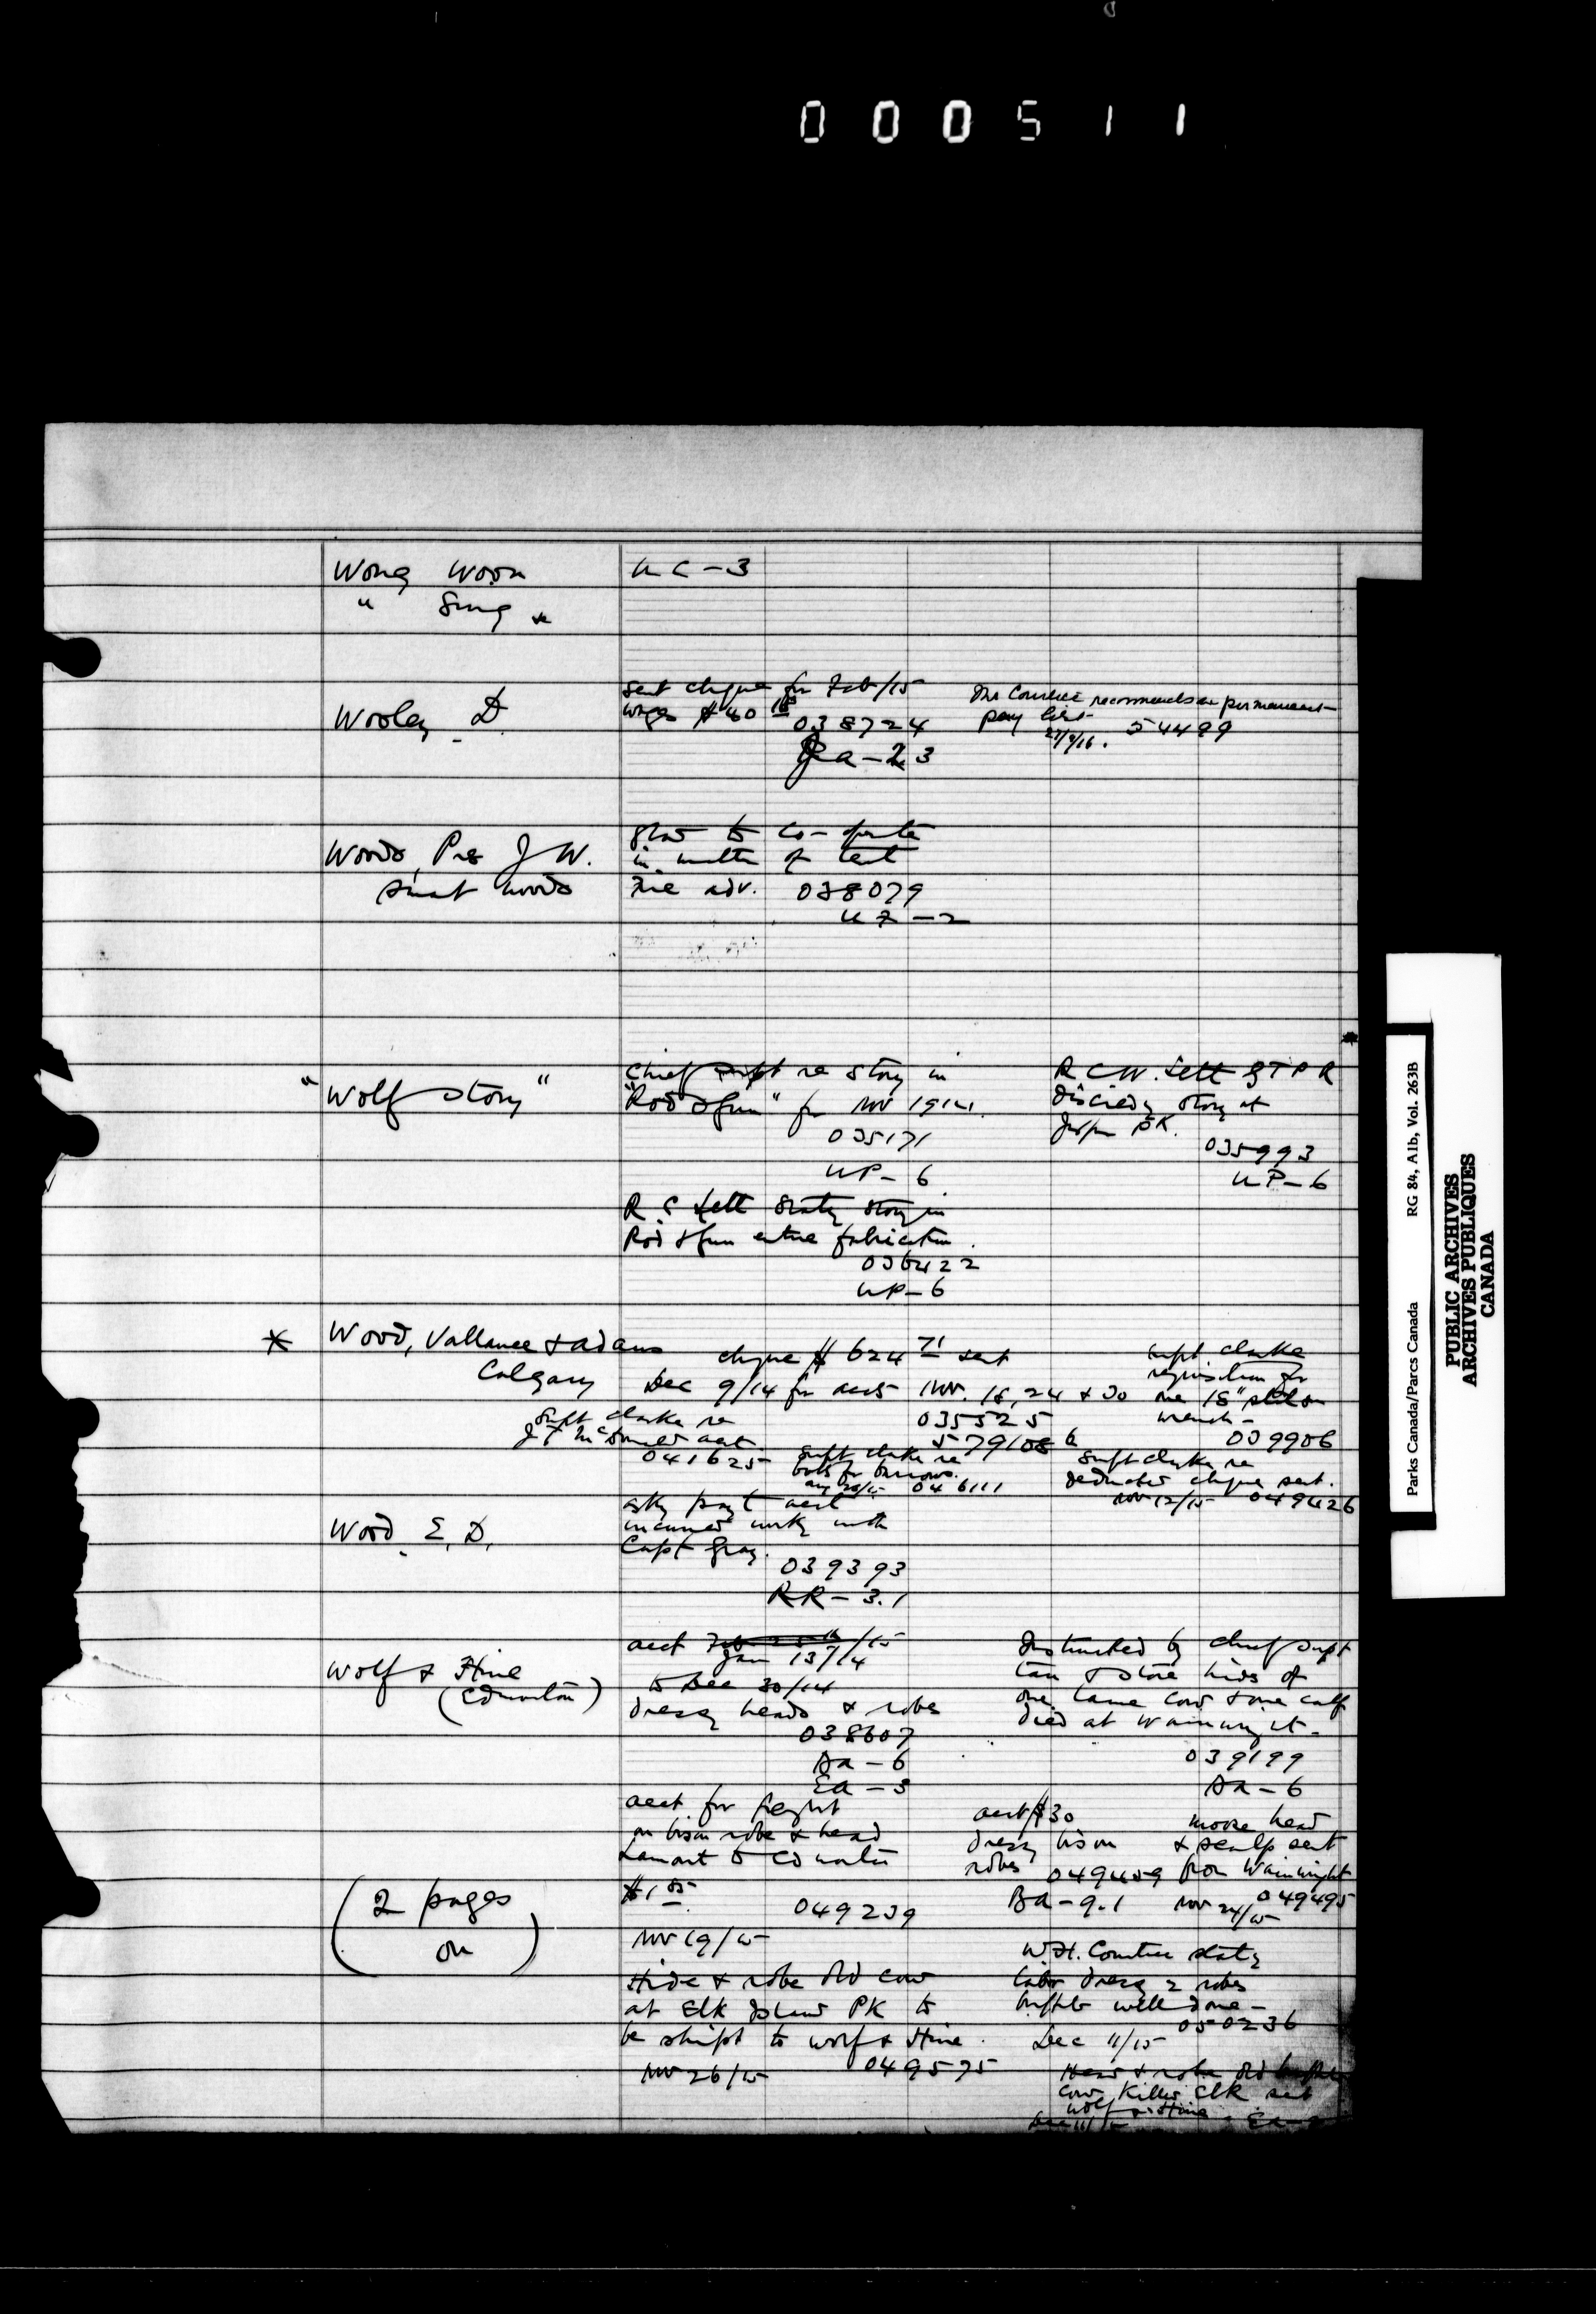 000511
Wong Woon
" Sung
UC-3
Wooley D.
Sent cheque for Feb/15
wages $40
038724
Ja-23
recommends on permanent
pay list
54499
Woods, Pres J W.
Smart Woods
Glad to co-operate
in matter of tent
Fire adv. 038079
UF-2
"Wolf story"
Chief Supt re story in
"Rod & Gun" for Nov 1914.
035171
UP-6
R C W. Lett G T P R
story at
Jasper PK.
035993
UP-6
R. C Lett stating story in
Rod & Gun entire fabrication.
036422
UP-6
* Wood, Vallance & Adams
Calgary
cheque $624 71 sent
Dec 9/14 for accts Nov. 18, 24 & 30
035525
579108
Supt Clarke
requisition for
one 18" stilson
wrench-
039906
Supt Clarke re
J T McDonald acct.
041625
Supt Clarke re
bolts for
Aug 20/15 046111
Supt Clarke re
cheque sent.
Nov 12/15 049426
Wood. E. D.
asking payt acct
incurred working with
Capt Gray.
039393
RR-3.1
Wolf & Hine
(Edmonton)
acct Feb 25th/15
Jan 13/14
to Dec 30/14
dressing heads & robes
038607
Aa-6
Ea-3
Instructed by Chief Supt
tan & store hides of
one lame cow & one calf
died at Wainwright-
039199
Aa-6
acct. for freight
on bison robe & head
Lamont to Edmonton
$1 85
049239
Nov 19/15
acct $30
dressing bison
robes
049459
Ba-9.1
moose head
& scalp sent
from Wainwright
049495
Nov 24/15
(2 pages
on)
Hide & robe old cow
at Elk Island PK to
be shipt to Wolf & Hine.
Nov 26/15 049575
W.H. Cowtree stating
labor dressing 2 robes
buffalo well done-
050236
Dec 11/15
Head & robe old
cow killed Elk sent
Wolf & Hine
Dec 11/15
Parks Canada/Parcs Canada RG 84, A1b, Vol. 263B
PUBLIC ARCHIVES
ARCHIVES PUBLIQUES
CANADA